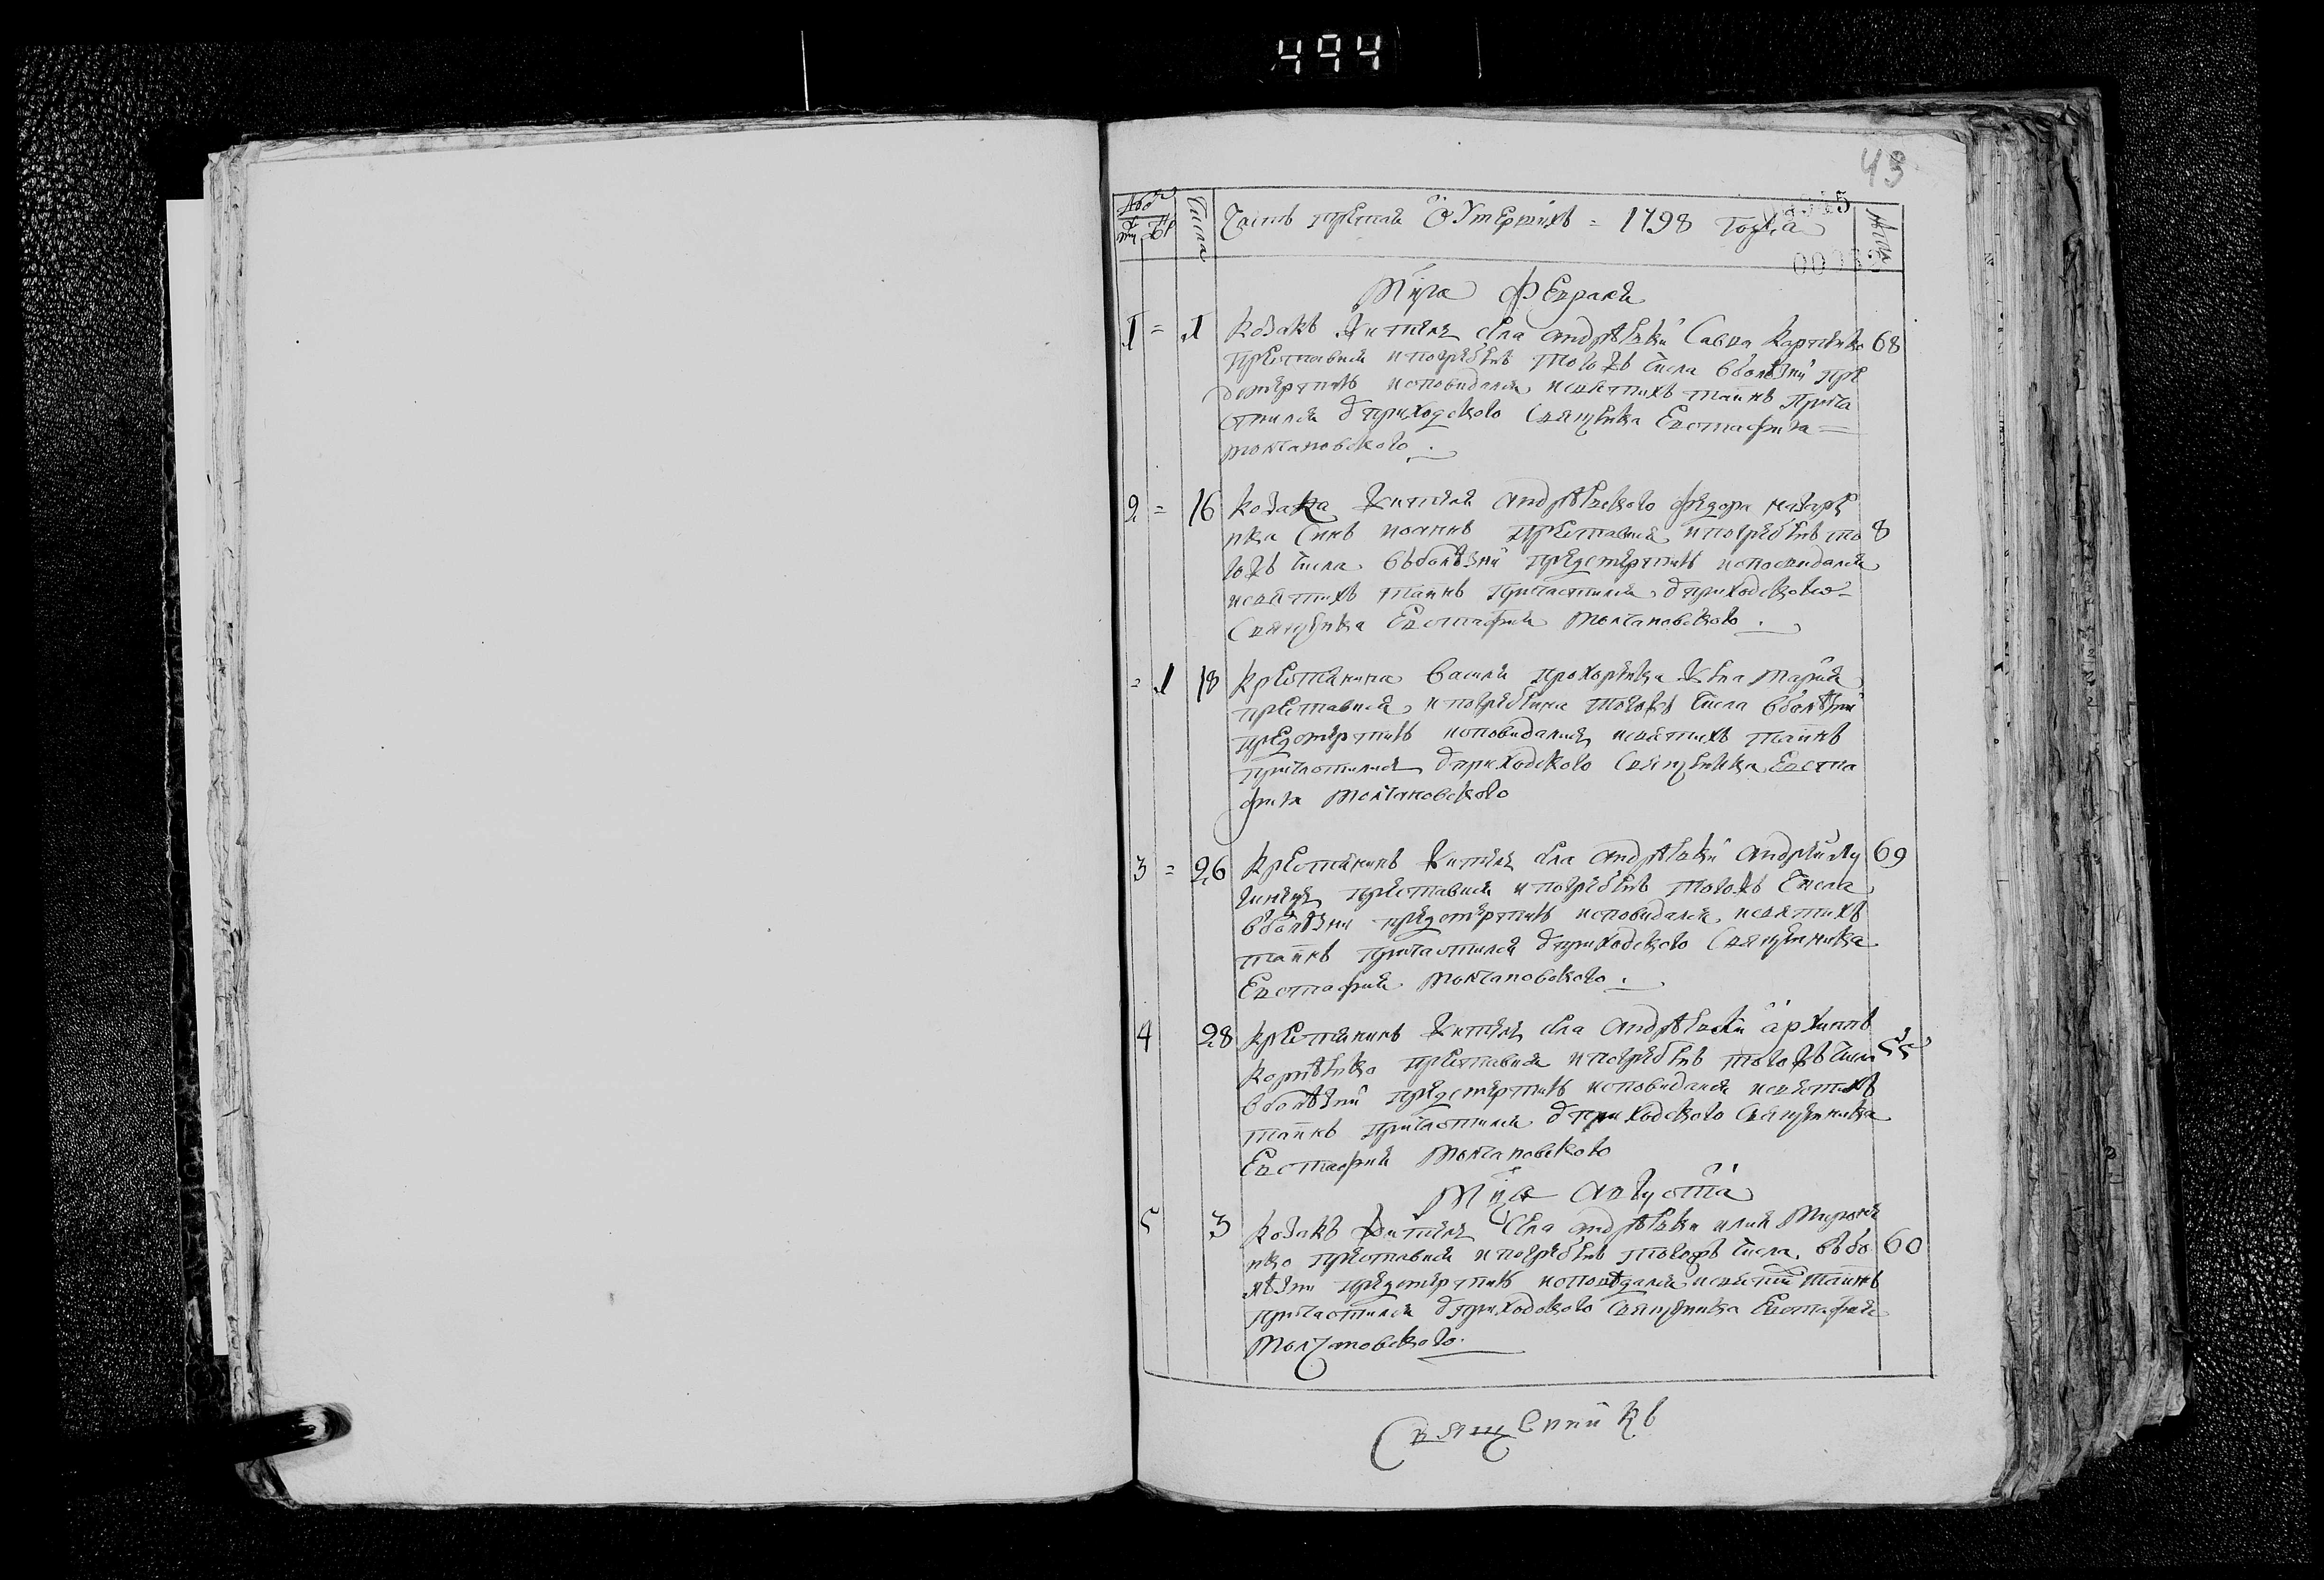 494
43
Числа
Часть третая О Умершихъ = 1798 года
Лѣта
Мца Февраля
1 = 1 Козакъ житель села Андрѣевки Савва Карпенко 68
преставися и погребенъ того жъ числа в болѣзни пре
дсмертнѣ исповидался и святихъ таинъ прича
стился от приходского священика Евстафиа =
Молчановского .
2 = 16 Козака жителя андрѣевского федора назаре
нка синъ иоаннъ преставися и погребенъ то 8
гожъ числа въ болѣзни предсмертнѣ исповидался
и святихъ таинъ причастился от приходского
священика Евстафия Молчановского .
= 1 18 Крестянина василя прохоренка жена мария
преставися и погребена тогожъ числа в болѣзни
предсмертнѣ исповидалися и святихъ таинъ
причастилася от приходского священика Евста
фия Молчановского
3 = 26 Крестянинъ житель села андрѣевки андрей 69
преставися и погребенъ тогожъ числа
в болѣзни предсмертнѣ исповидался и святихъ
таинъ причастился от приходского священника
Евстафия Молчановского .
4 28 Крестянинъ житель села андрѣевки архипъ
преставися и погребенъ тогожъ числа 55
в болѣзни предсмертнѣ исповидался и святихъ
таинъ причастился от приходского священника
Евстафия Молчановского
Мца Августа
5 3 Козакъ житель села андрѣевки илия Мироне
нко преставися и погребенъ тогожъ числа въ бо 60
лѣзни предсмертнѣ исповѣдался и святих таинъ
причастился от приходского священика Евстафия
Молчановского.
Священникъ